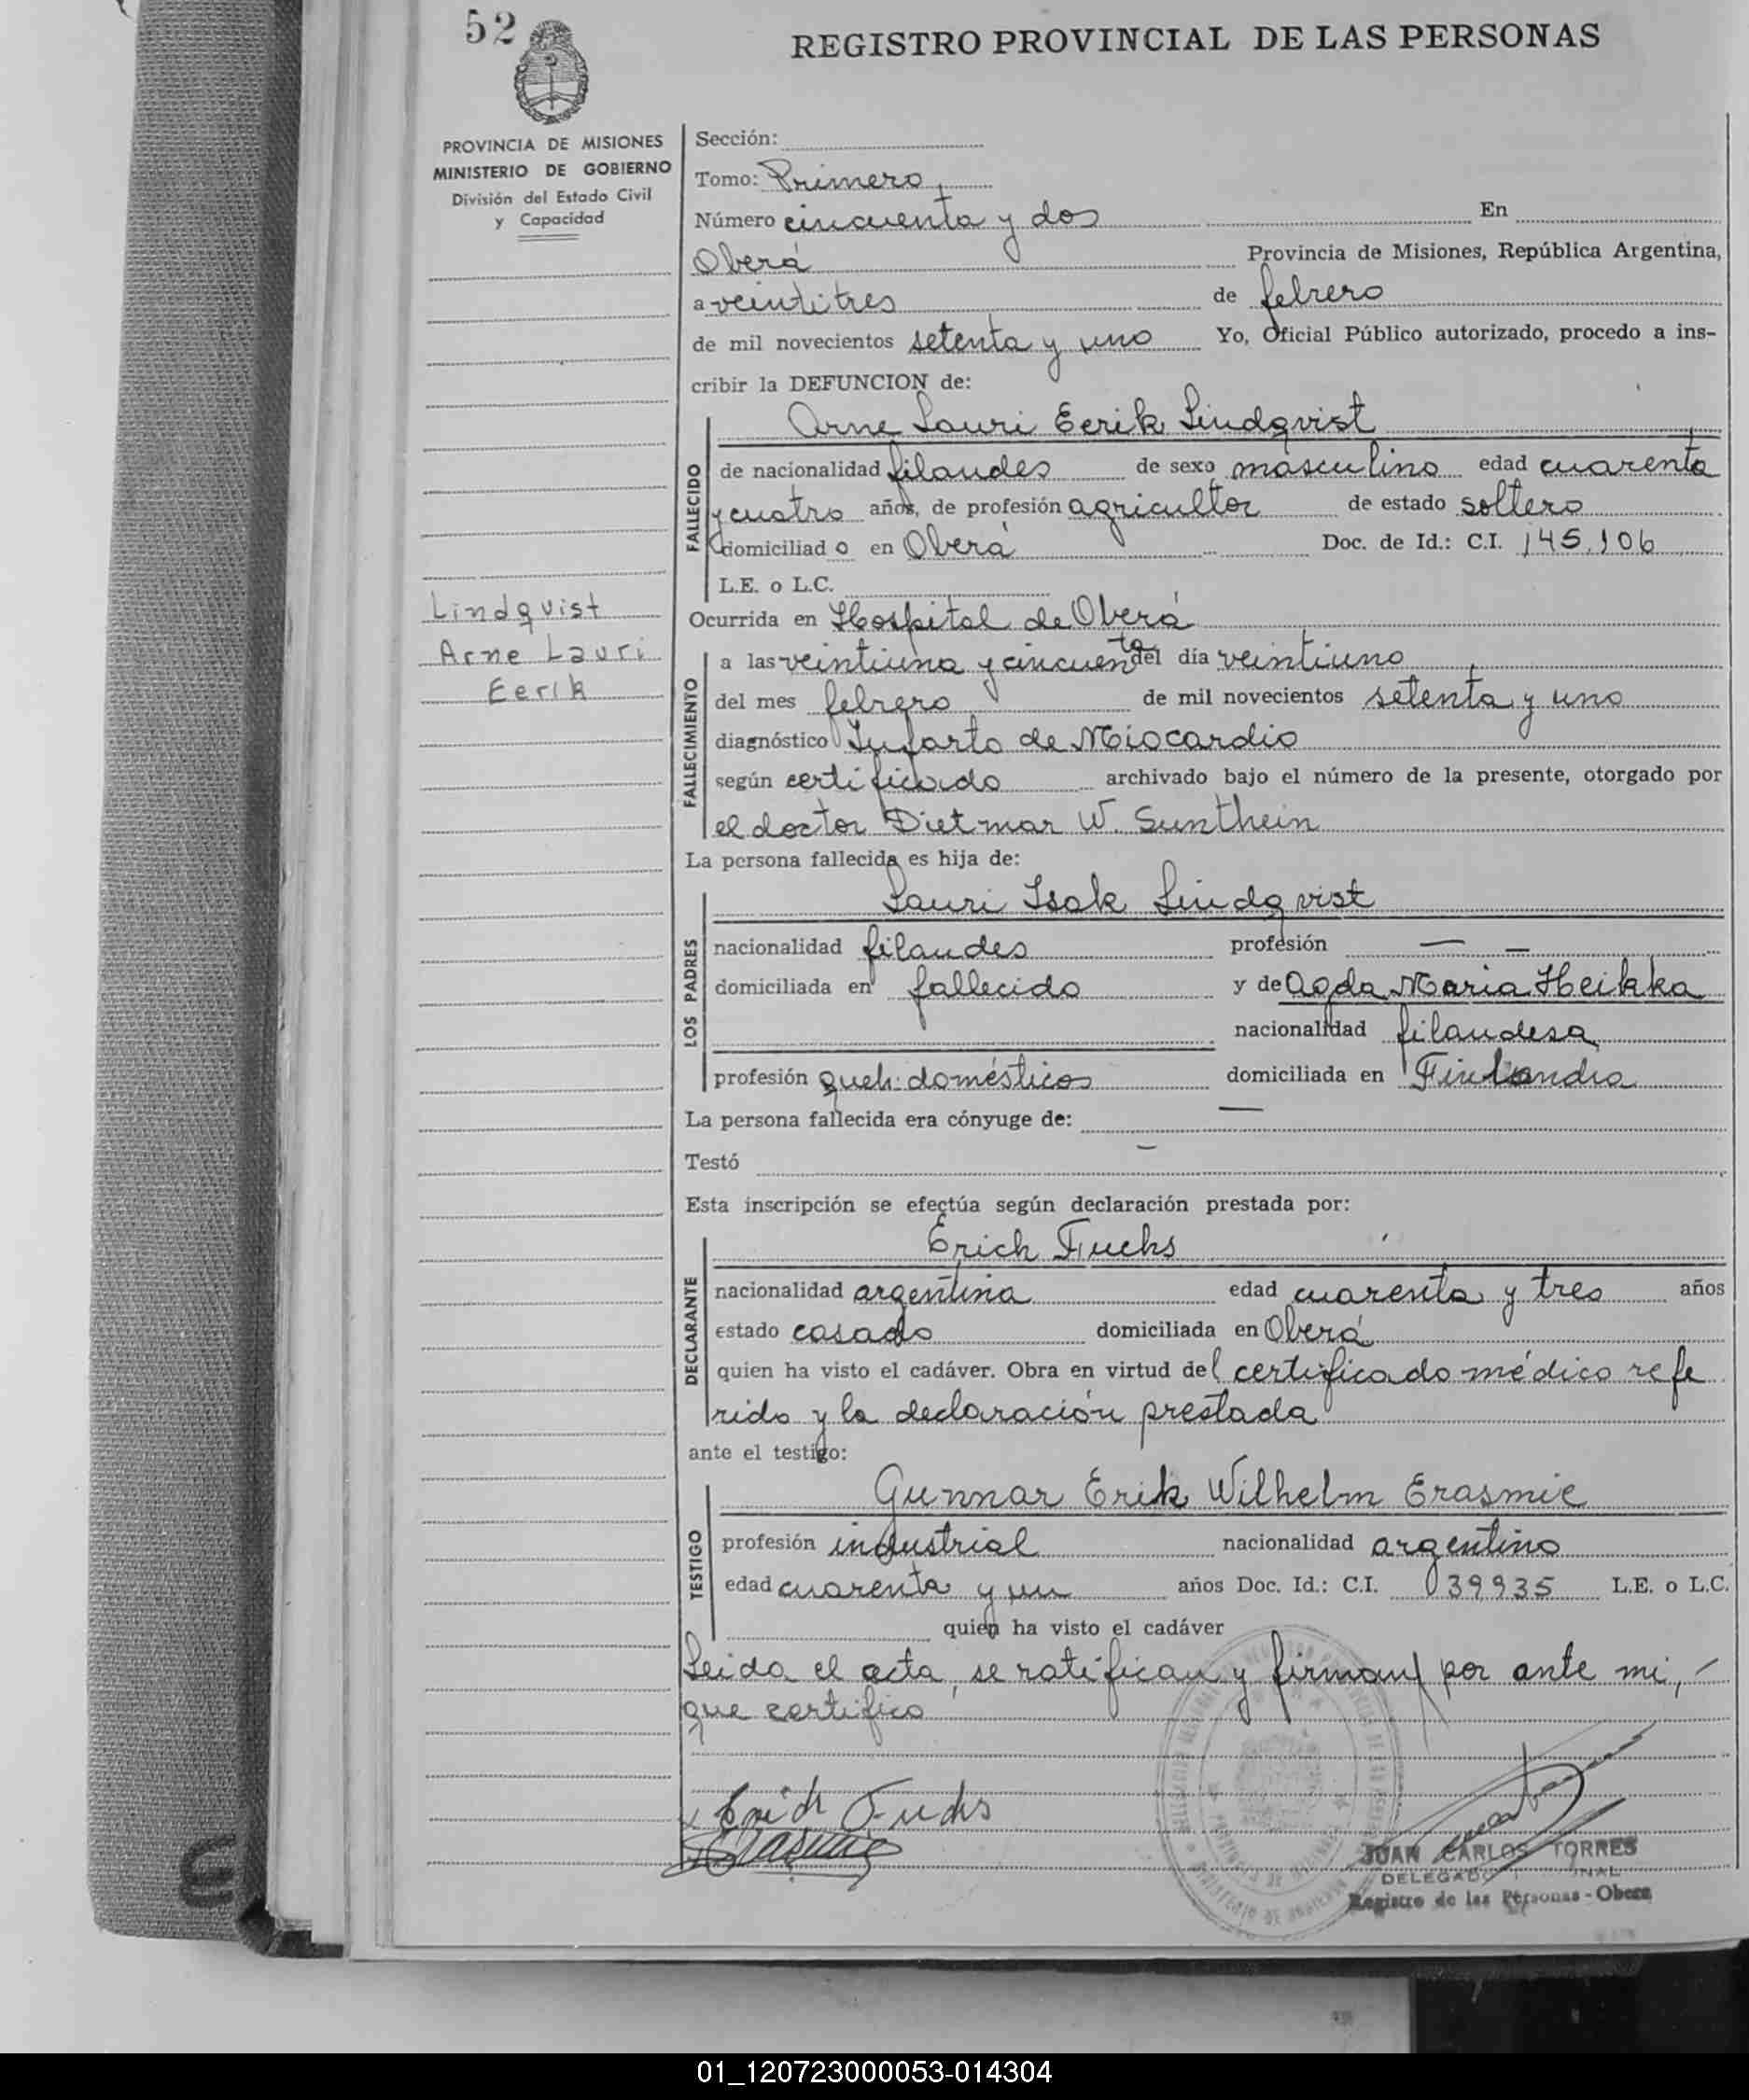 52
REGISTRO PROVINCIAL DE LAS PERSONAS
PROVINCIA DE MISIONES
MINISTERIO DE GOBIERNO
División del Estado Civil
y Capacidad
Lindqvist
Arne Lauri
Eerik
Sección:
Tomo: Primero
Número cincuenta y dos En
Oberá Provincia de Misiones, República Argentina,
a veintitres de febrero
de mil novecientos setenta y uno Yo, Oficial Público autorizado, procedo a ins-
cribir la DEFUNCION de:
FALLECIDO
Arne Lauri Eerik Lindqvist
de nacionalidad filandes de sexo masculino edad cuarenta
y cuatro años, de profesión agricultor de estado soltero
domiciliado en Oberá Doc. de Id.: C.I. 145.106
L.E. o L.C.
Ocurrida en Hospital de Oberá
FALLECIMIENTO
a las veintiuna y cincuenta del día veintiuno
del mes febrero de mil novecientos setenta y uno
diagnóstico Infarto de Miocardio
según certificado archivado bajo el número de la presente, otorgado por
el doctor Dietmar W. Sunthein
La persona fallecida es hija de:
LOS PADRES
Lauri Isak Lindqvist
nacionalidad filandes profesión — —
domiciliada en fallecido y de Agda Maria Heikka
nacionalidad filandesa
profesión queh. domésticos domiciliada en Finlandia
La persona fallecida era cónyuge de: —
Testó —
Esta inscripción se efectúa según declaración prestada por:
DECLARANTE
Erich Fuchs
nacionalidad argentina edad cuarenta y tres años
estado casado domiciliada en Oberá
quien ha visto el cadáver. Obra en virtud del certificado médico refe
rido y la declaración prestada
ante el testigo:
TESTIGO
Gunnar Erik Wilhelm Erasmie
profesión industrial nacionalidad argentino
edad cuarenta y un años Doc. Id.: C.I. 039935 L.E. o L.C.
quien ha visto el cadáver
Leida el acta, se ratifican y firman por ante mi,
que certifico
Erich Fuchs
Erasmie
JUAN CARLOS TORRES
DELEGADO
Registro de las Personas - Obera
01_120723000053-014304